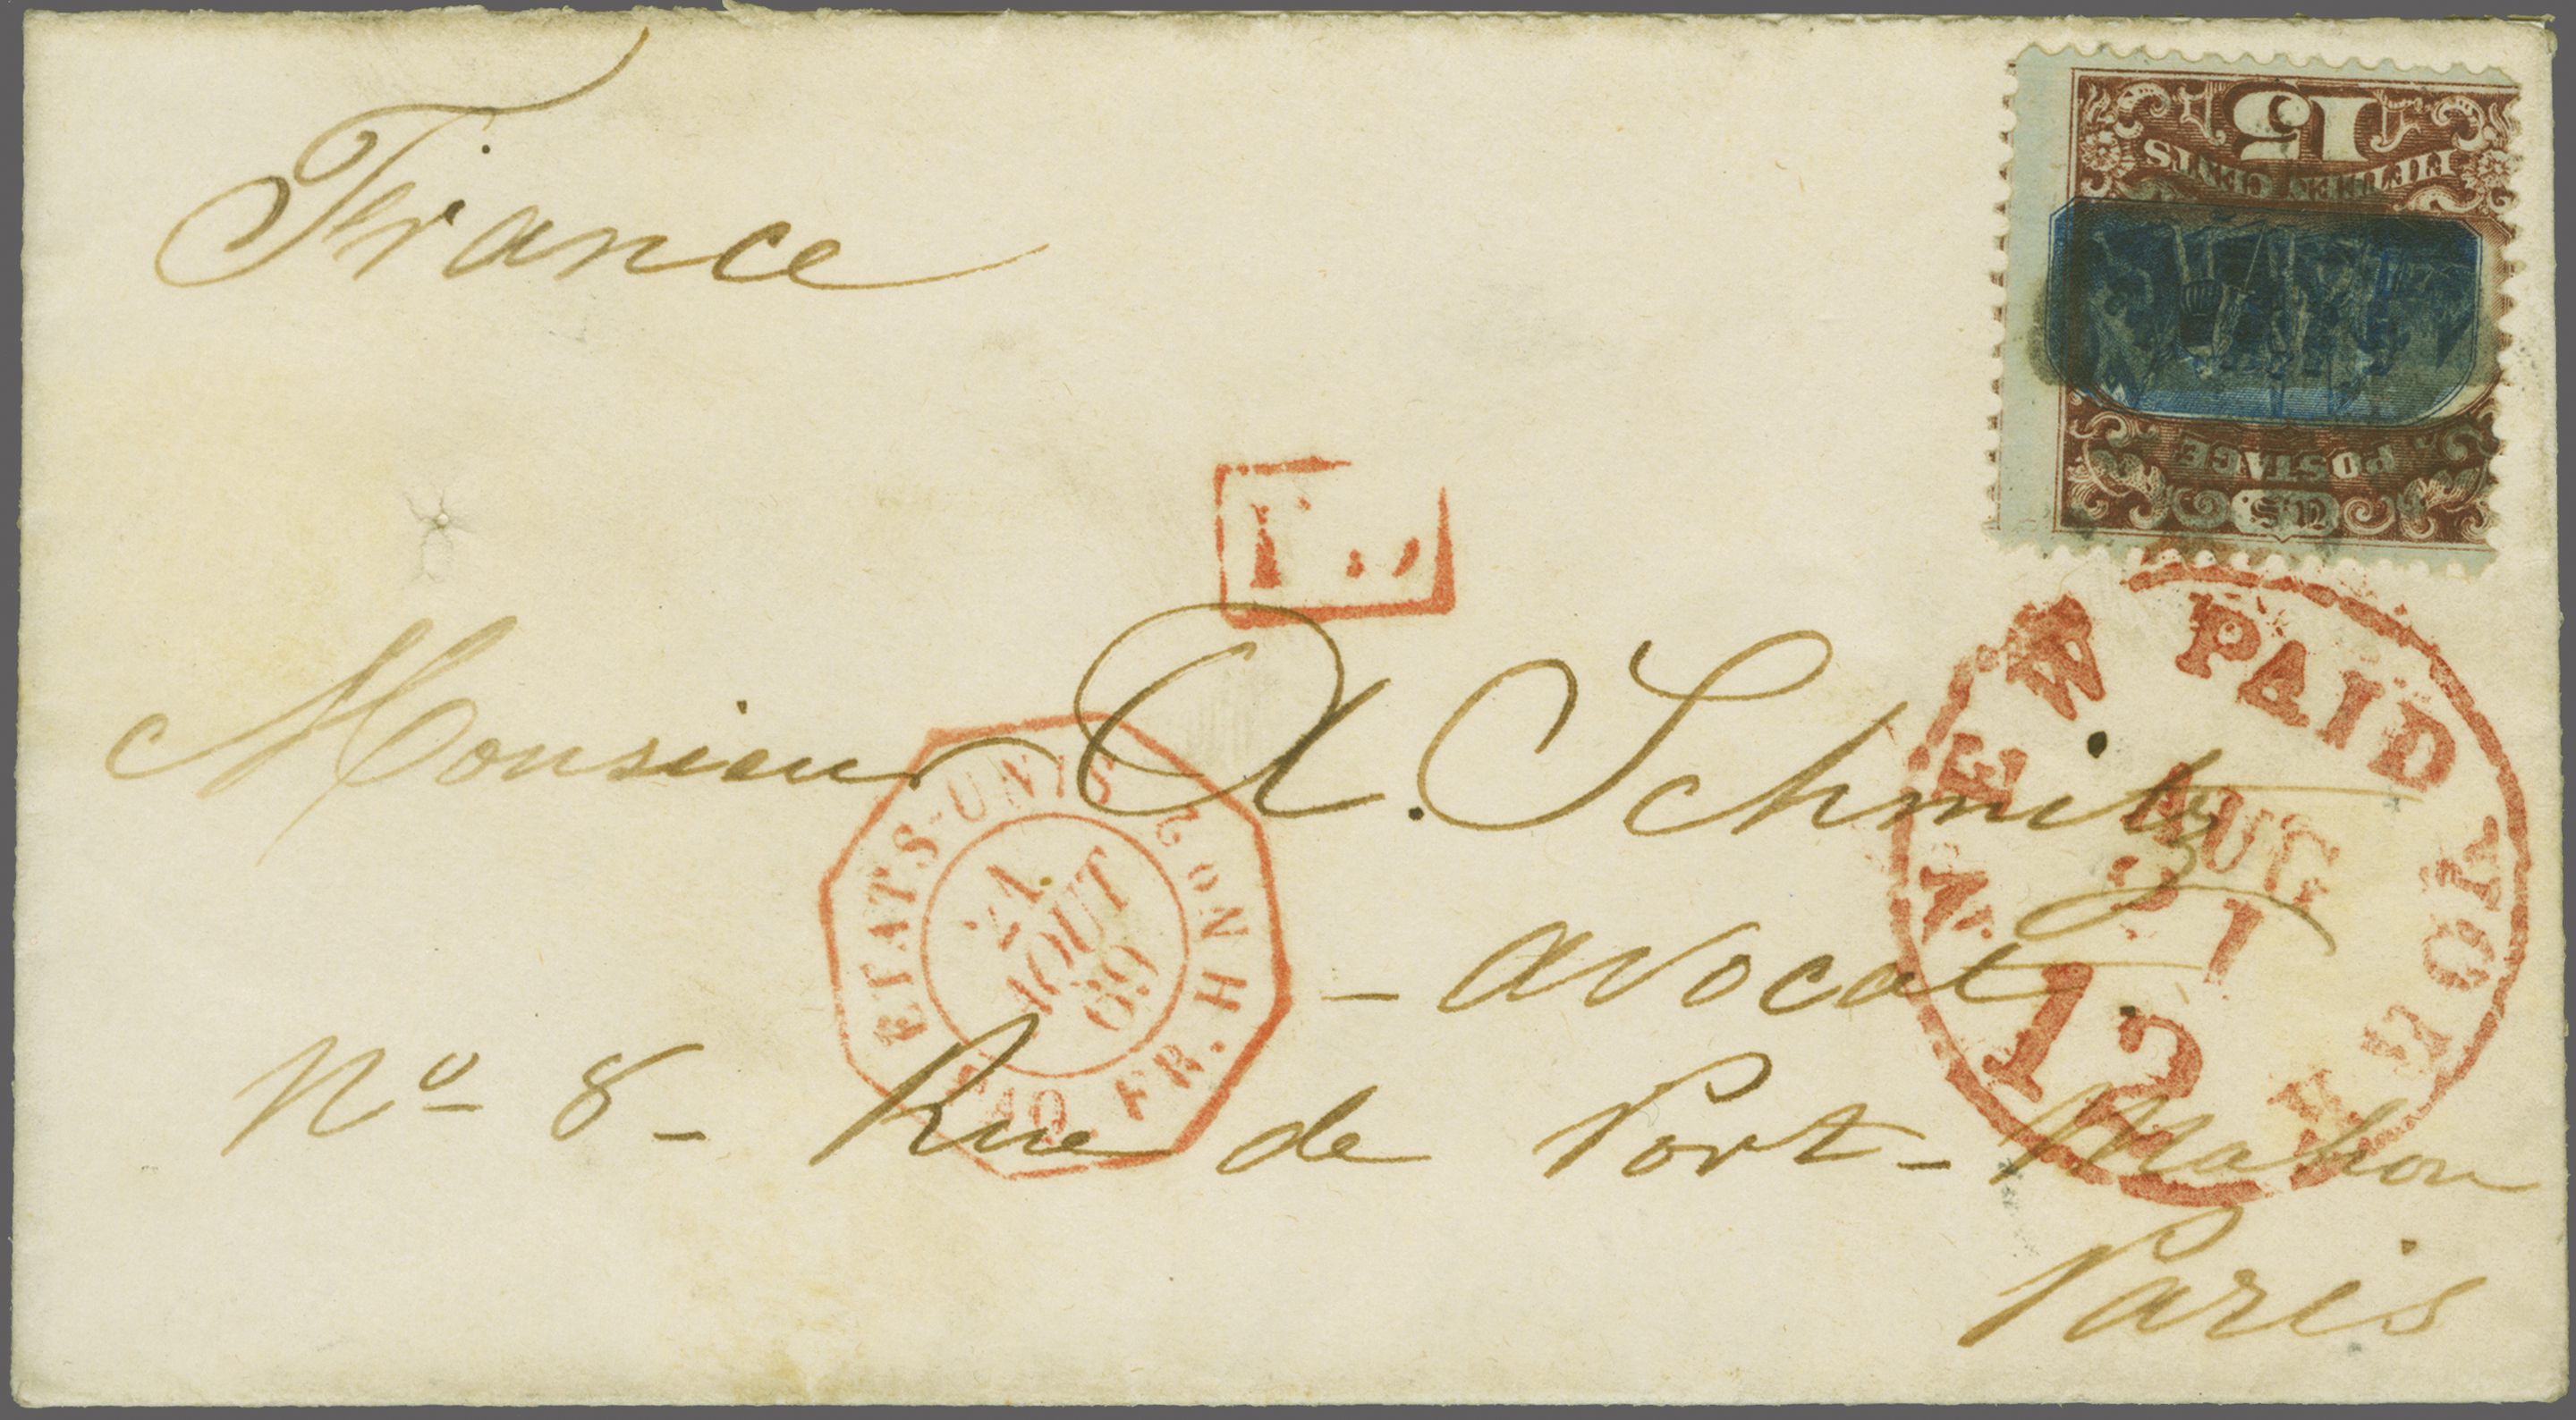 France
15
FIFTEEN CENTS
U.S.
POSTAGE
NEW PAID YORK
AUG
21
12
Monsieur A. Schmitz
ETATS-UNIS
AOUT
69
PAQ. FR. H No 2
- avocat.
No 8 - Rue de Port-Mahon
Paris